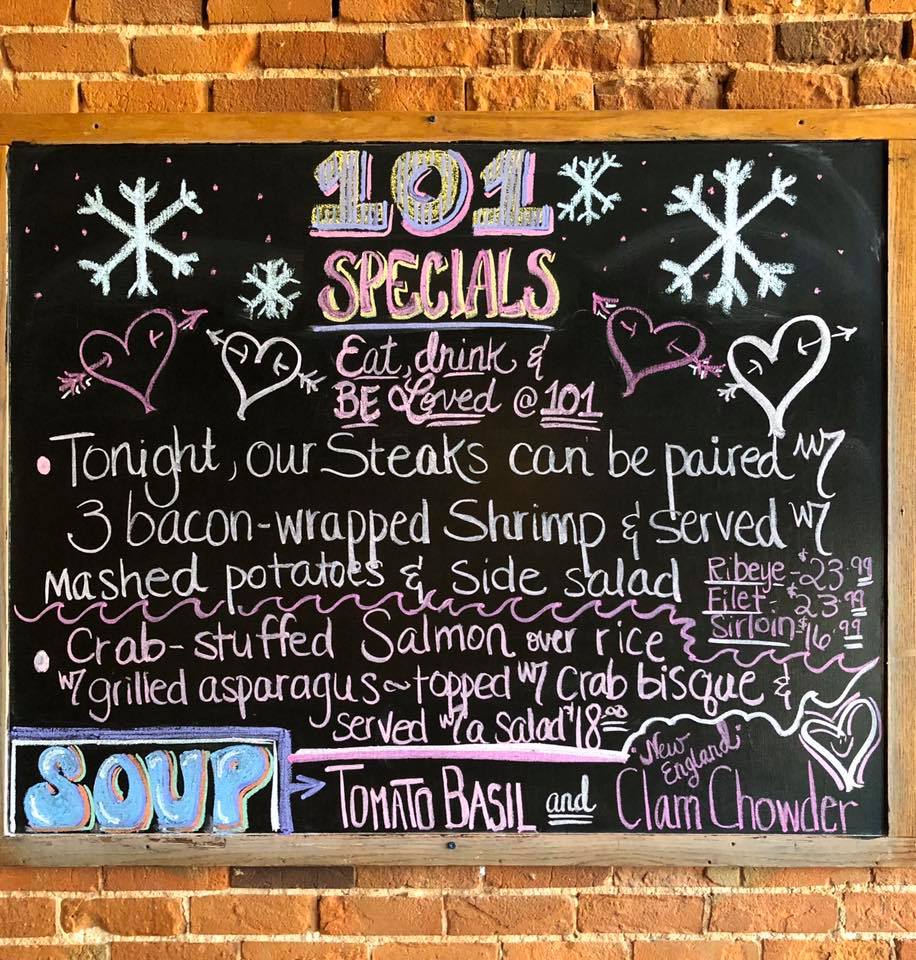 101
SPECIALS
Eat, drink &
BE Loved @ 101
• Tonight, our Steaks can be paired w/
3 bacon-wrapped Shrimp & served w/
mashed potatoes & side salad
Ribeye - $23.99
Filet - $23.99
Sirloin $16.99
• Crab-stuffed Salmon over rice
w/ grilled asparagus ~ topped w/ crab bisque &
served w/ a salad $18.00
SOUP → TOMATO BASIL and "New England" Clam Chowder